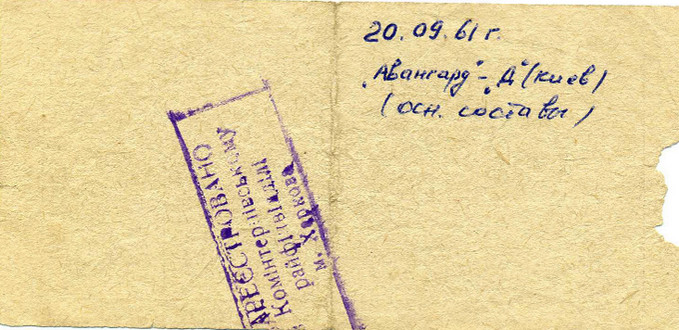 20.09.61 г.
„Авангард" – „Д" (Киев)
(осн. составы)
ЗАРЕЄСТРОВАНО
Комінтернівському
райфінвідділі
м. Харкова